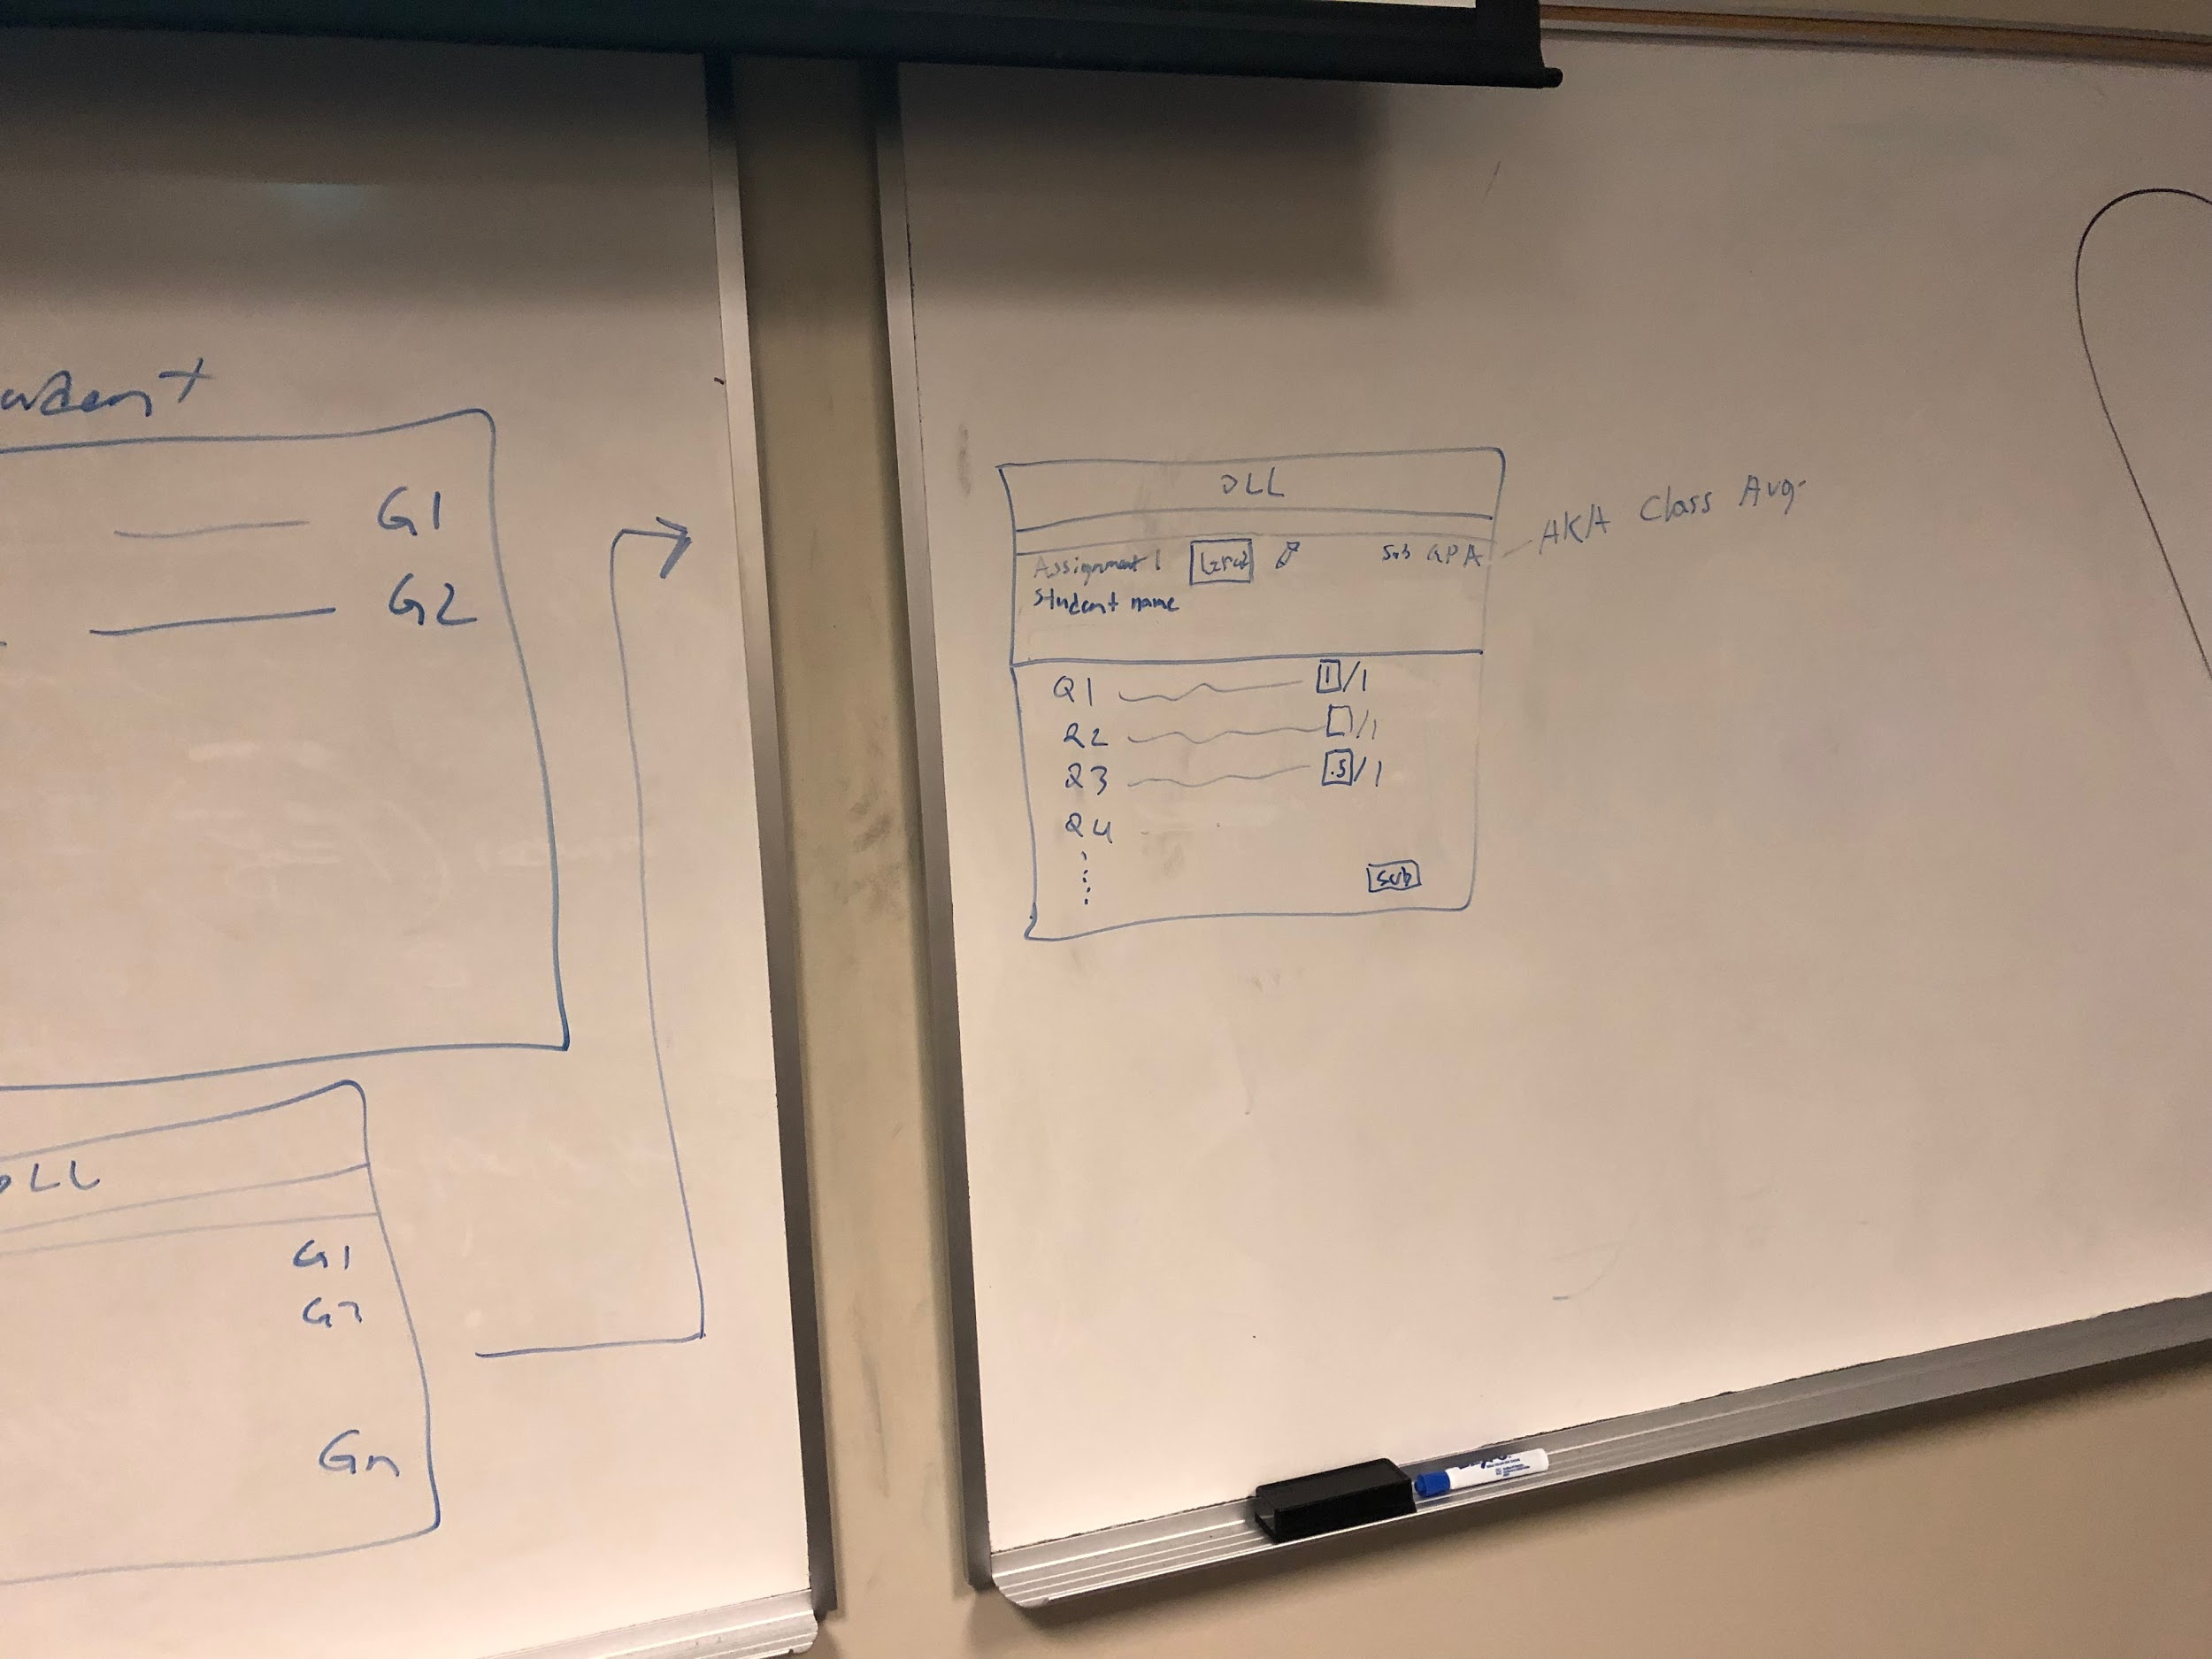 G1
G2
LL
G1
Gn
DLL
Assignment 1 Sub GPA
AKA Class Avg.
Student name
Q1 1/1
Q2 /1
Q3 .5/1
Q4
Sub